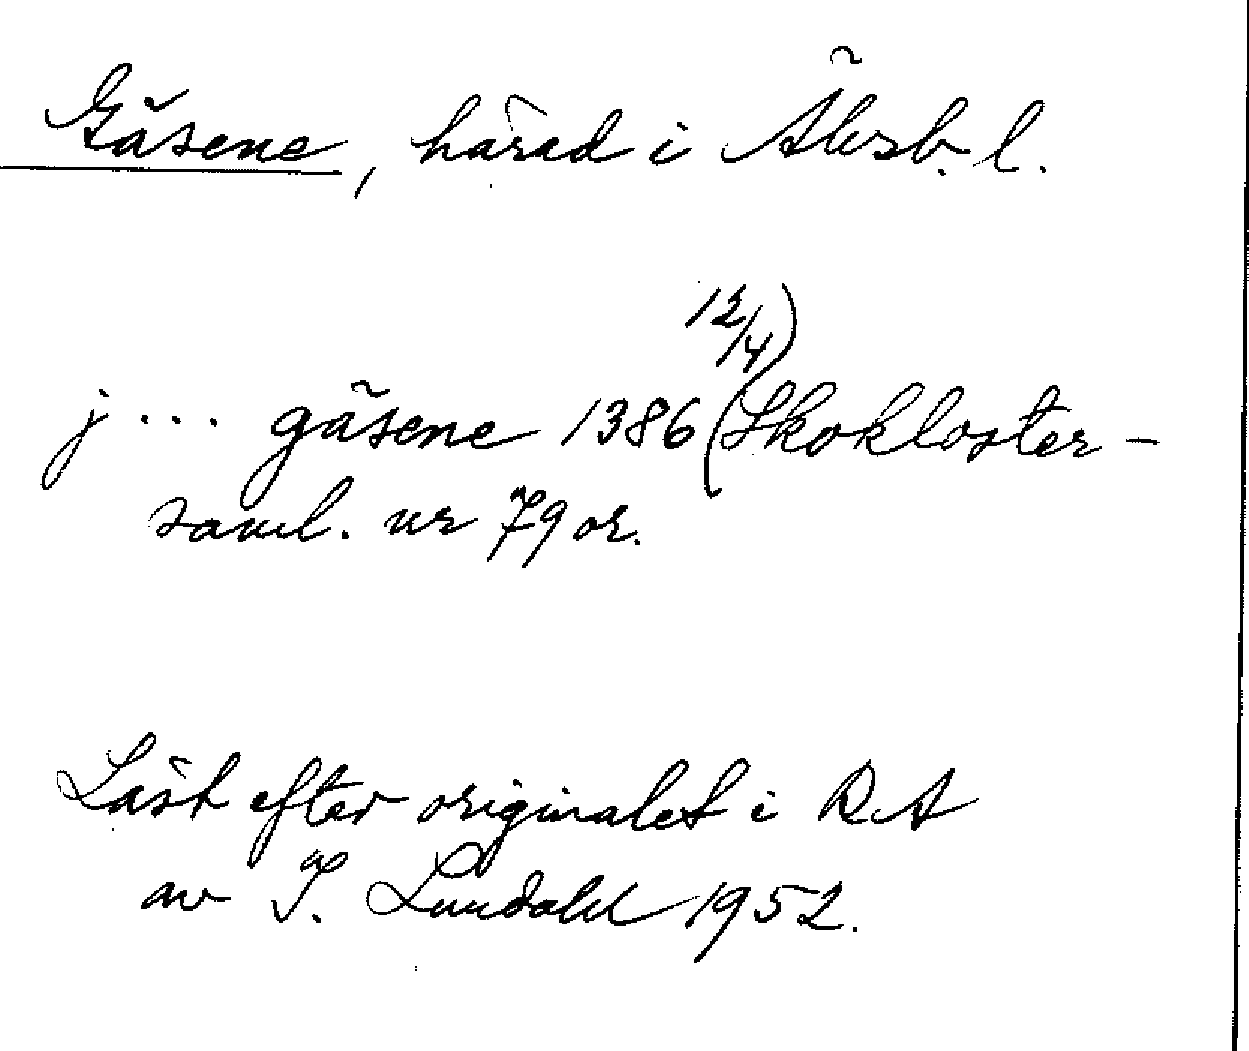 Gäsene, härad i Älvsb. l.
j ... gäsene 1386 12/4 (Skokloster-
saml. nr 79 or.
Läst efter originalet i RA
av I. Lundahl 1952.